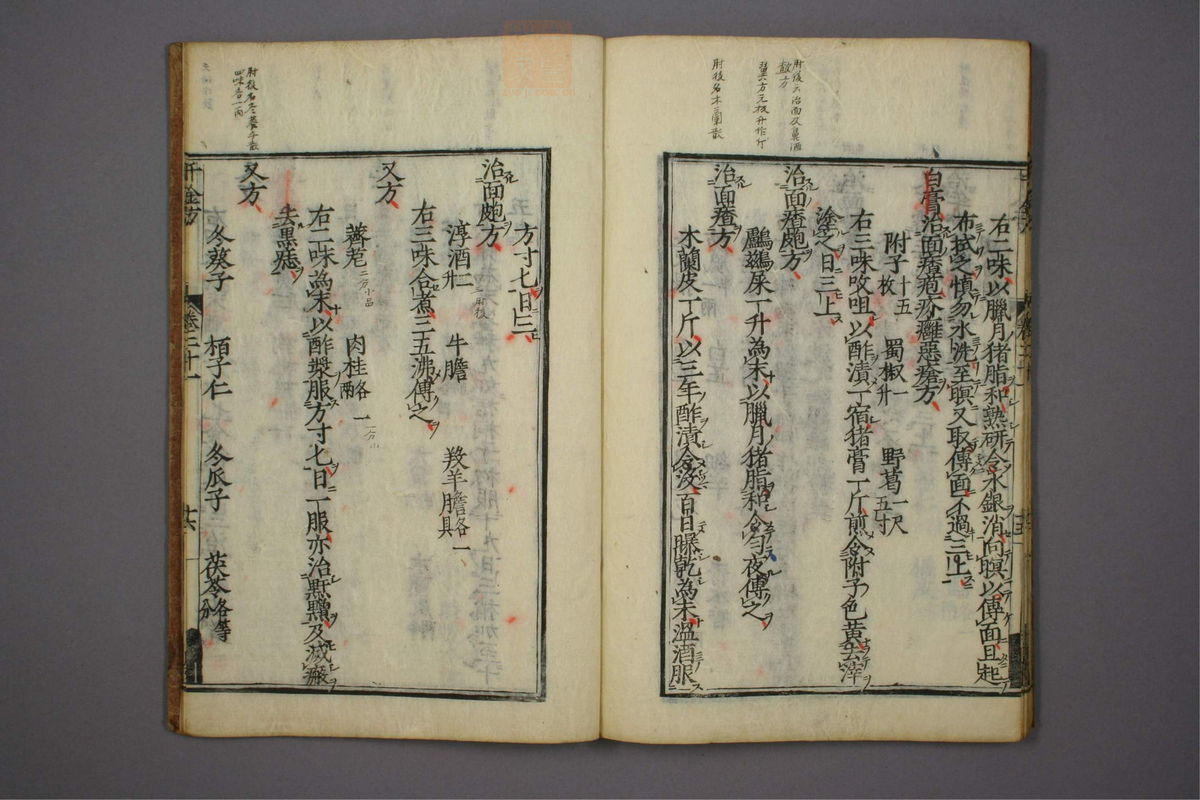 右二味以臘月猪脂和熟研令水銀消向暝以傅面旦起
布拭之慎勿水洗至暝又取傅面不過三上
白膏治面㿀疱疥癰惡瘡方
附子十五枚 蜀椒一升 野葛一尺五寸
右三味㕮咀以酢漬一宿猪膏一斤煎令附子色黄去滓
塗之日三上
治面㿀皰方
鸕鷀屎一升為末以臘月猪脂和令勻夜傅之
治面㿀方
木蘭皮一斤以三年酢漬令没百日曝乾為末温酒服
肘後云治面及鼻酒
肘後名木蘭散
方寸匕日三
治面皰方
淳酒二升 牛膽 羖羊膽各一具
右三味合煮三五沸傅之
又方
薺苨 肉桂各一兩
右二味為末以酢漿服方寸匕日一服亦治䵟䵳及滅瘢
去黒痣
又方
冬葵子 栢子仁 冬瓜子 茯苓各等分
肘後名冬葵子散
四味各一兩
千金方
卷二十一
十六